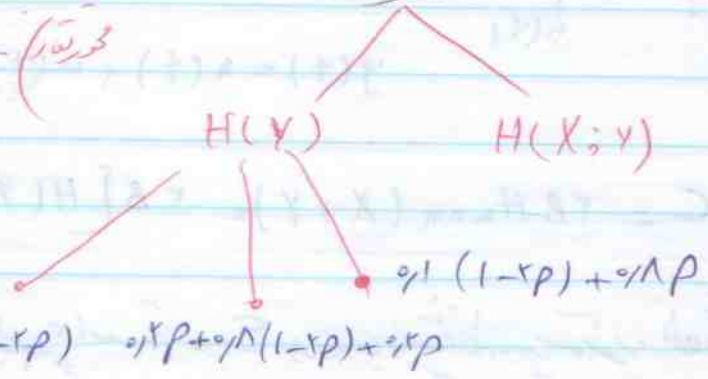 محور تقارن
H(Y) H(X;Y)
۰٫۱ (۱-۲P) + ۰٫۸P
-۲P) ۰٫۲P+۰٫۸(۱-۲P)+۰٫۲P